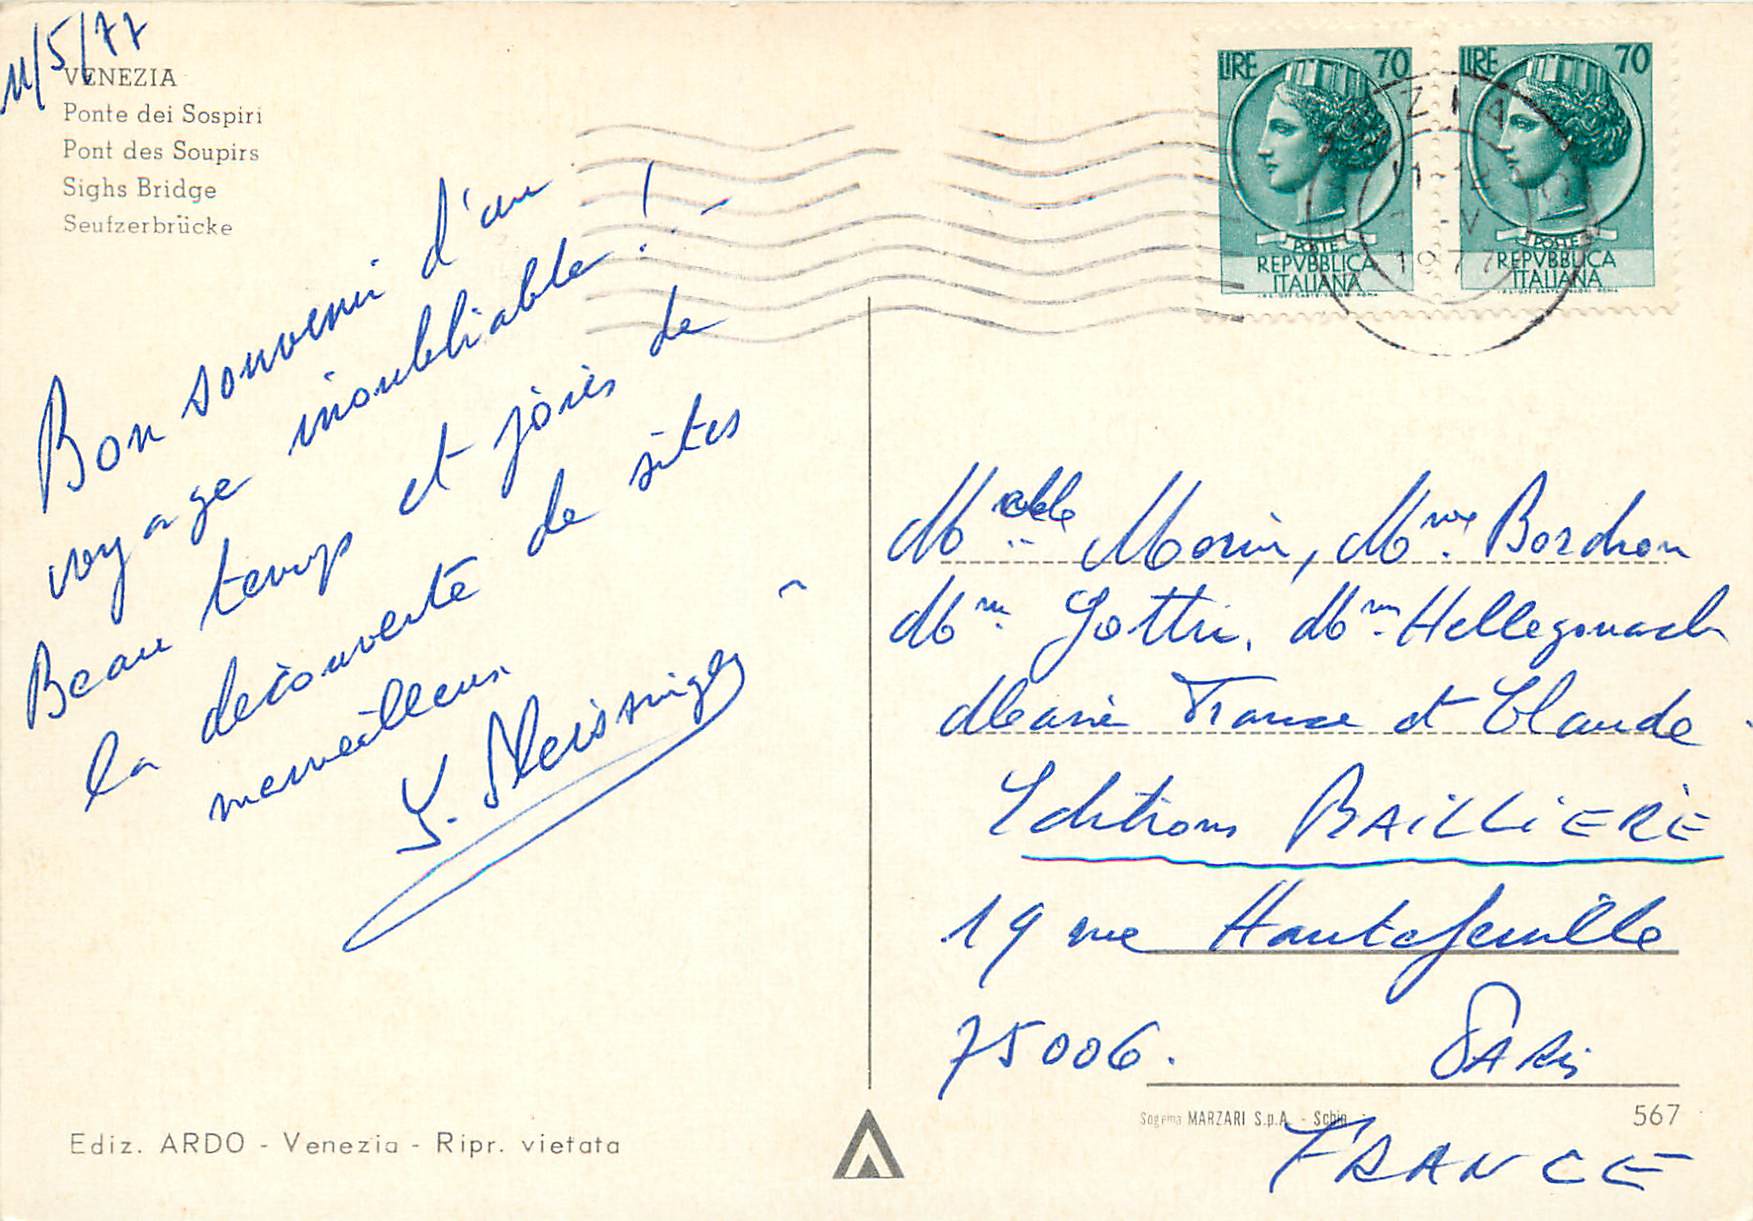 11/5/77
VENEZIA
Ponte dei Sospiri
Pont des Soupirs
Sighs Bridge
Seufzerbrücke
Bon souvenir d'un
voyage inoubliable ! -
Beau temps et joies de
la découverte de sites
merveilleux.
Ediz. ARDO - Venezia - Ripr. vietata
LIRE 70
POSTE
REPVBBLICA
ITALIANA
LIRE 70
POSTE
REPVBBLICA
ITALIANA
11-12
-V
1977
Melle Morin, Mme. Bordron
Mme. Gottin. Mme
Marie France et Claude
Editions BAiLLiERE
19 rue Hautefeuille
75006. PARis
Sogema MARZARI S.p.A. - Schio
567
FRANCE